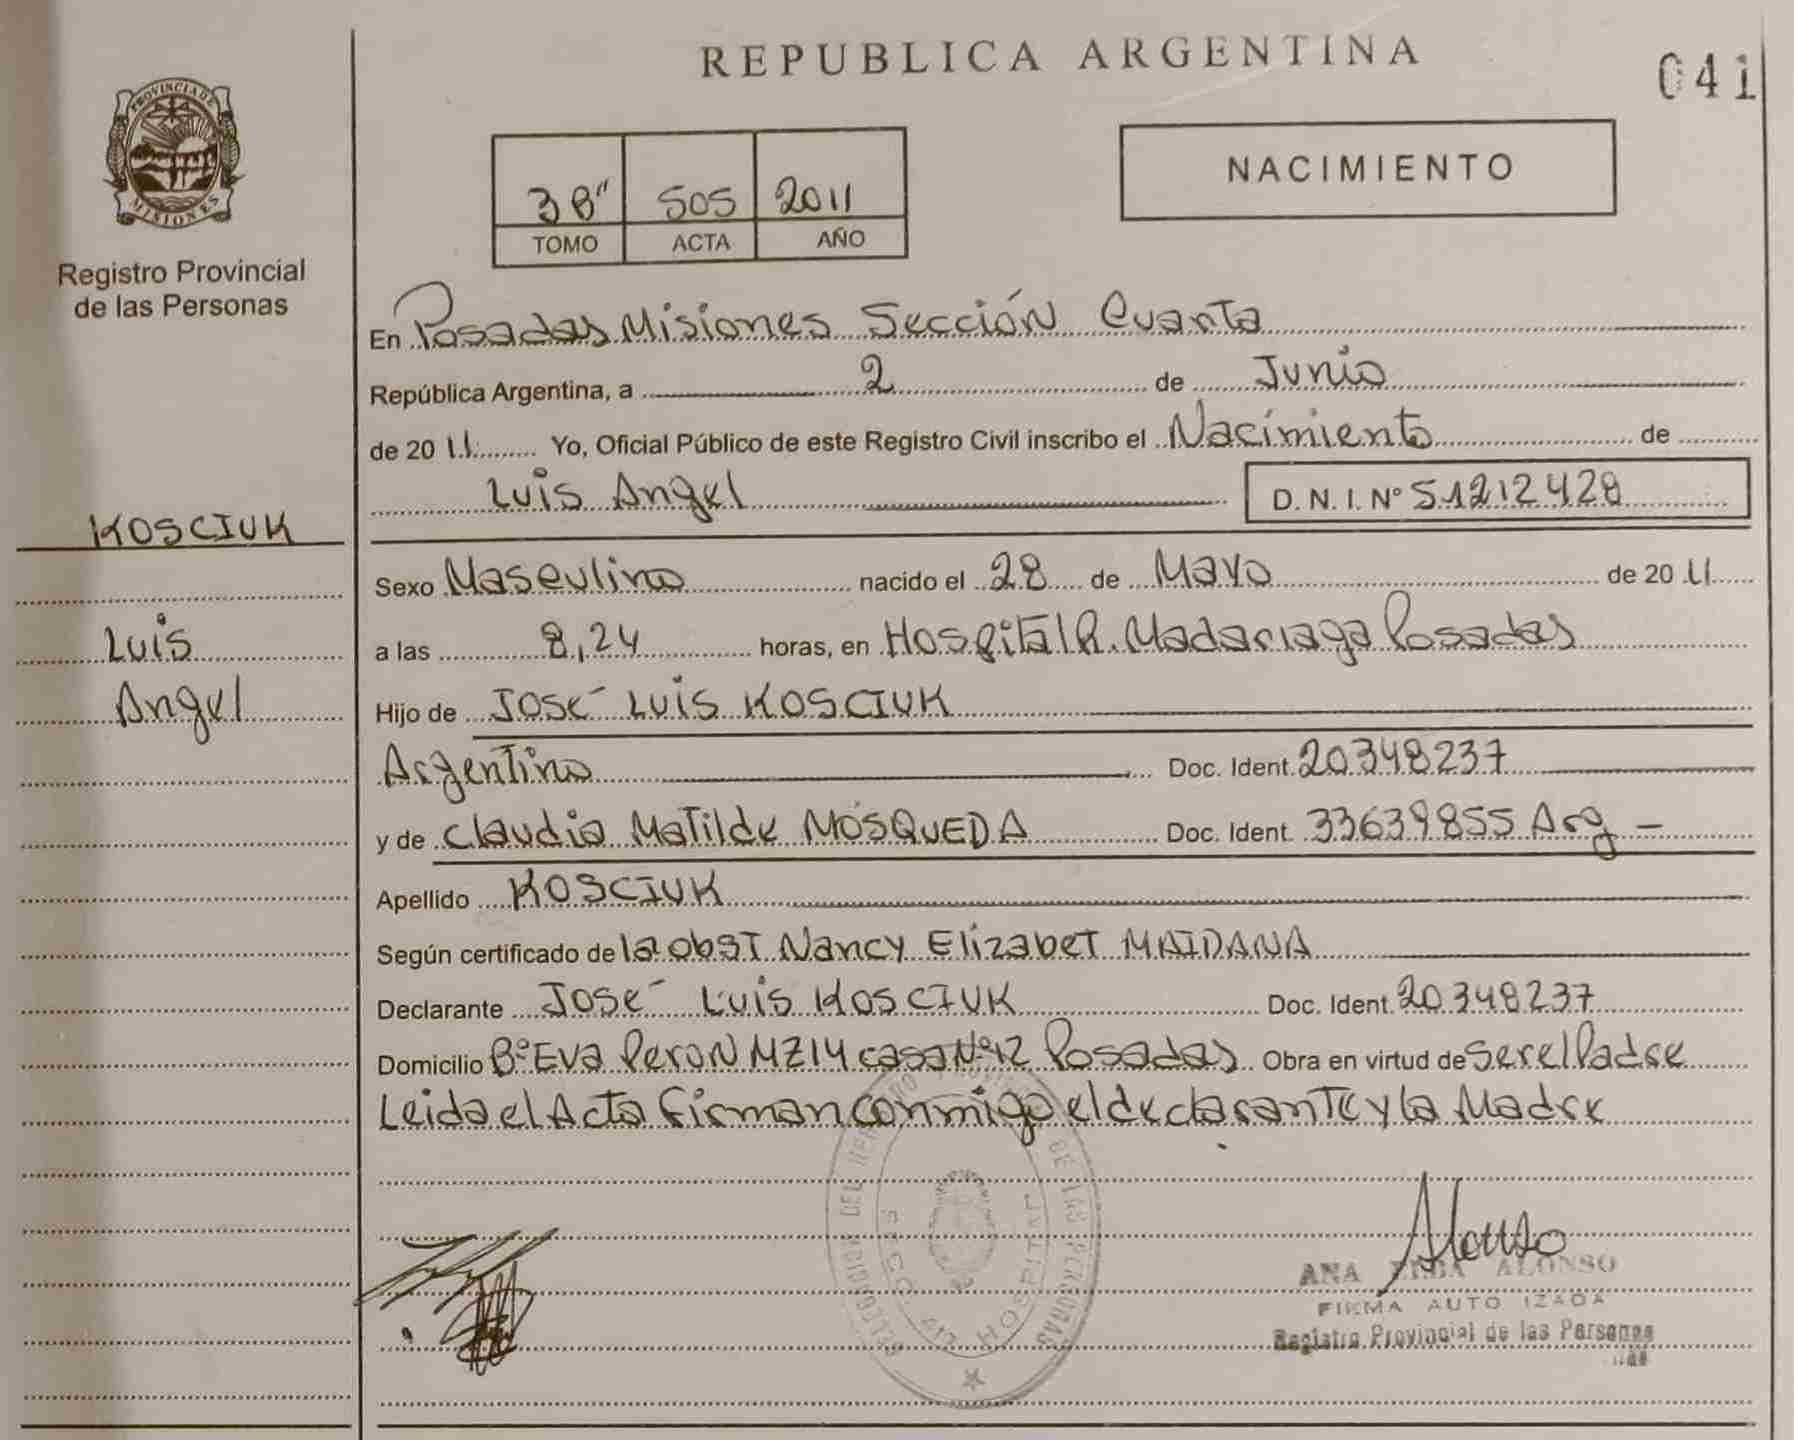 REPUBLICA ARGENTINA
041
PROVINCIA DE
MISIONES
Registro Provincial
de las Personas
NACIMIENTO
3B" 505 2011
TOMO ACTA AÑO
En Posadas Misiones Sección Cuarta
República Argentina, a 2 de Junio
de 2011 Yo, Oficial Público de este Registro Civil inscribo el Nacimiento de
Luis Angel D. N. I. Nº 51212428
KOSCIUK
Luis
Angel
Sexo Masculino nacido el 28 de Mayo de 2011
a las 8,24 horas, en Hospital R. Madariaga Posadas
Hijo de José Luis KOSCIUK
Argentino Doc. Ident. 20348237
y de Claudia Matilde MOSQUEDA Doc. Ident. 33639855 Arg -
Apellido KOSCIUK
Según certificado de la obst Nancy Elizabet MAIDANA
Declarante José Luis KOSCIUK Doc. Ident. 20348237
Domicilio Bº Eva Peron MZ14 casa Nº12 Posadas Obra en virtud de ser el Padre
Leida el Acta firman conmigo el declarante y la Madre
DE LAS PERSONAS
SECC. 4ta HOSPITAL
Alonso
ANA ALONSO
FIRMA AUTO IZADA
Registro Provincial de las Personas